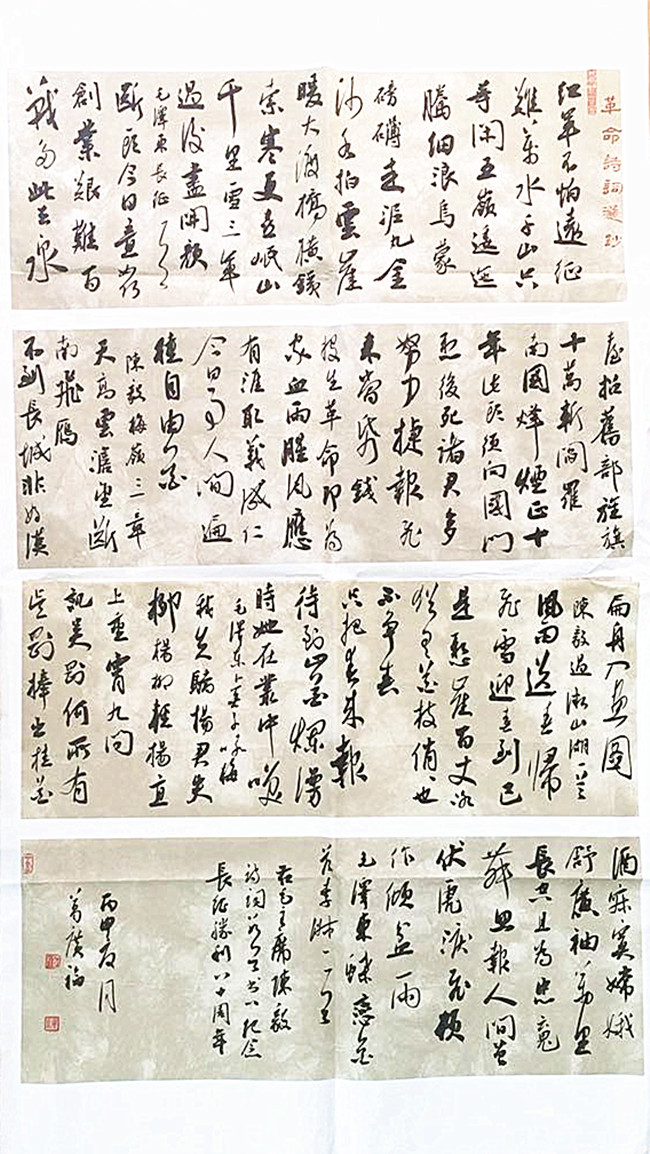 革命詩詞選抄
紅軍不怕遠征
難萬水千山只
等閑五嶺逶迤
騰細浪烏蒙
磅礴走泥丸金
沙水拍雲崖
暖大渡橋橫鐵
索寒更喜岷山
千里雪三軍
過後盡開顏
毛澤東長征一首
斷頭今日意如何
創業艱難百
戰多此去泉
臺招舊部旌旗
十萬斬閻羅
南國烽煙正十
年此頭須向國門
懸後死諸君多
努力捷報飛
來當紙錢
投生革命即為
家血雨腥風應
有涯取義成仁
今日事人間遍
種自由花
陳毅梅嶺三章
天高雲淡望斷
南飛雁
不到長城非好漢
扁舟入畫圖
陳毅過微山湖一首
風雨送春歸
飛雪迎春到已
是懸崖百丈冰
猶有花枝俏也
不爭春
只把春來報
待到山花爛漫
時她在叢中笑
毛澤東卜算子詠梅
我失驕楊君失
柳楊柳輕揚直
上重霄九問
訊吳剛何所有
吳剛捧出桂花
酒寂寞嫦娥
舒廣袖萬里
長空且為忠魂
舞忽報人間曾
伏虎淚飛頓
作傾盆雨
毛澤東蝶戀花
答李淑一一首
右毛主席陳毅
詩詞若干首書以紀念
長征勝利八十周年
丙申夏月
葛廣福